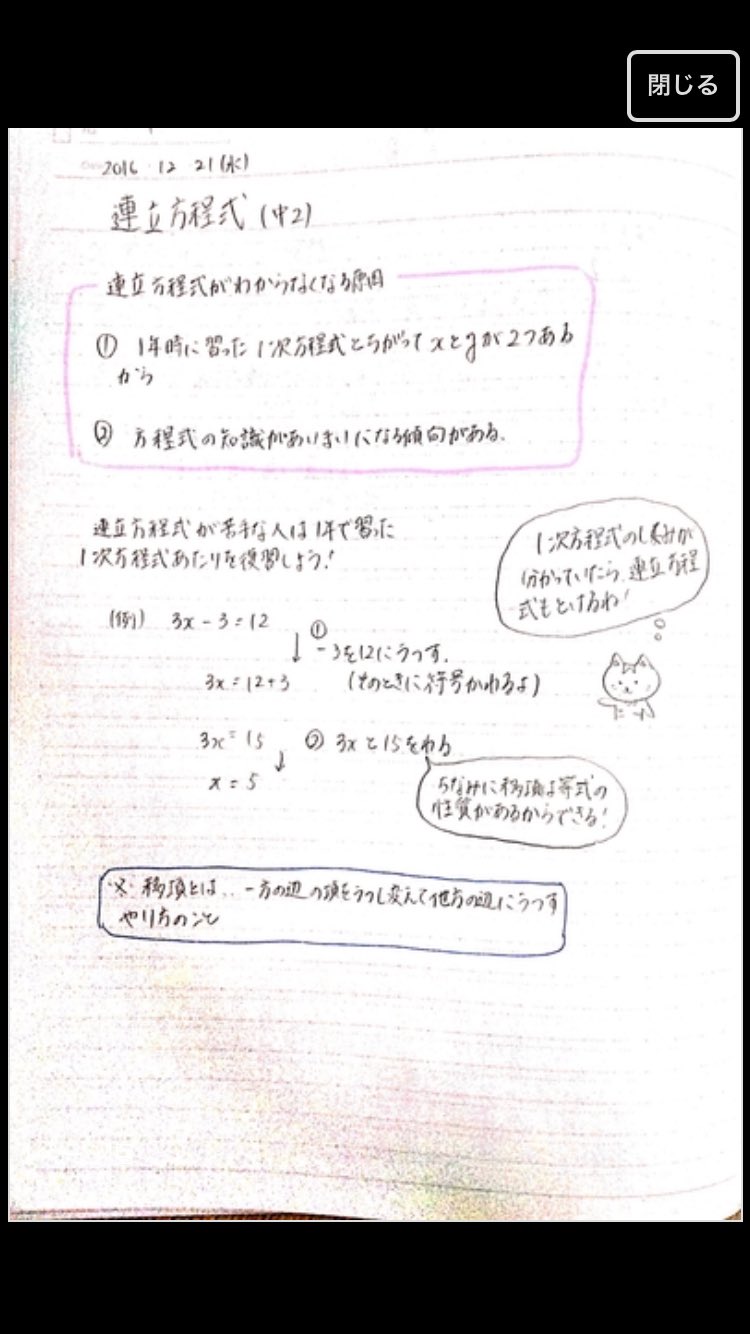 閉じる
2016 12 21(水)
連立方程式(中2)
連立方程式がわからなくなる原因
① 1年時に習った1次方程式とちがってxとyが2つある
から
② 方程式の知識があいまいになる傾向がある.
連立方程式が苦手な人は1年で習った
1次方程式あたりを復習しよう!
1次方程式のしくみが
分かっていたら、連立方程
式もとけるね!
(例) 3x-3=12
①
-3を12にうつす.
3x=12+3 (そのときに符号がかわるよ)
3x=15 ② 3xと15をわる
x=5
ちなみに移項は等式の
性質があるからできる!
※ 移項とは...一方の辺の項をうつし変えて他方の辺にうつす
やり方のこと